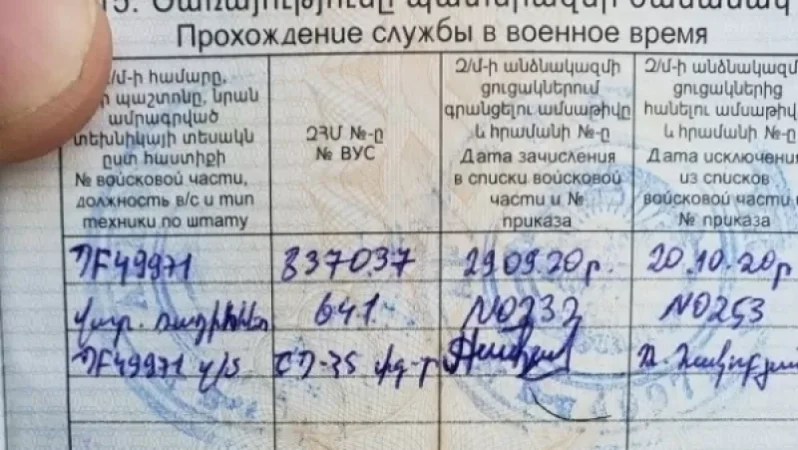 15. Ծառայությունը պատերազմի ժամանակ
Прохождение службы в военное время
Զ/մ-ի համարը,
պաշտոնը, նրան
ամրագրված
տեխնիկայի տեսակն
ըստ հաստիքի
№ войсковой части,
должность в/с и тип
техники по штату
ԶՀՄ №-ը
№ ВУС
Զ/Մ-ի անձնակազմի
ցուցակներում
գրանցելու ամսաթիվը
և հրամանի №-ը
Дата зачисления
в списки войсковой
части и №
приказа
Զ/Մ-ի անձնակազմի
ցուցակներից
հանելու ամսաթիվ
և հրամանի №-ը
Дата исключения
из списков
войсковой части и
№ приказа
49971 837037 29.09.20թ. 20.10.20թ
641 N0232 N0253
49971